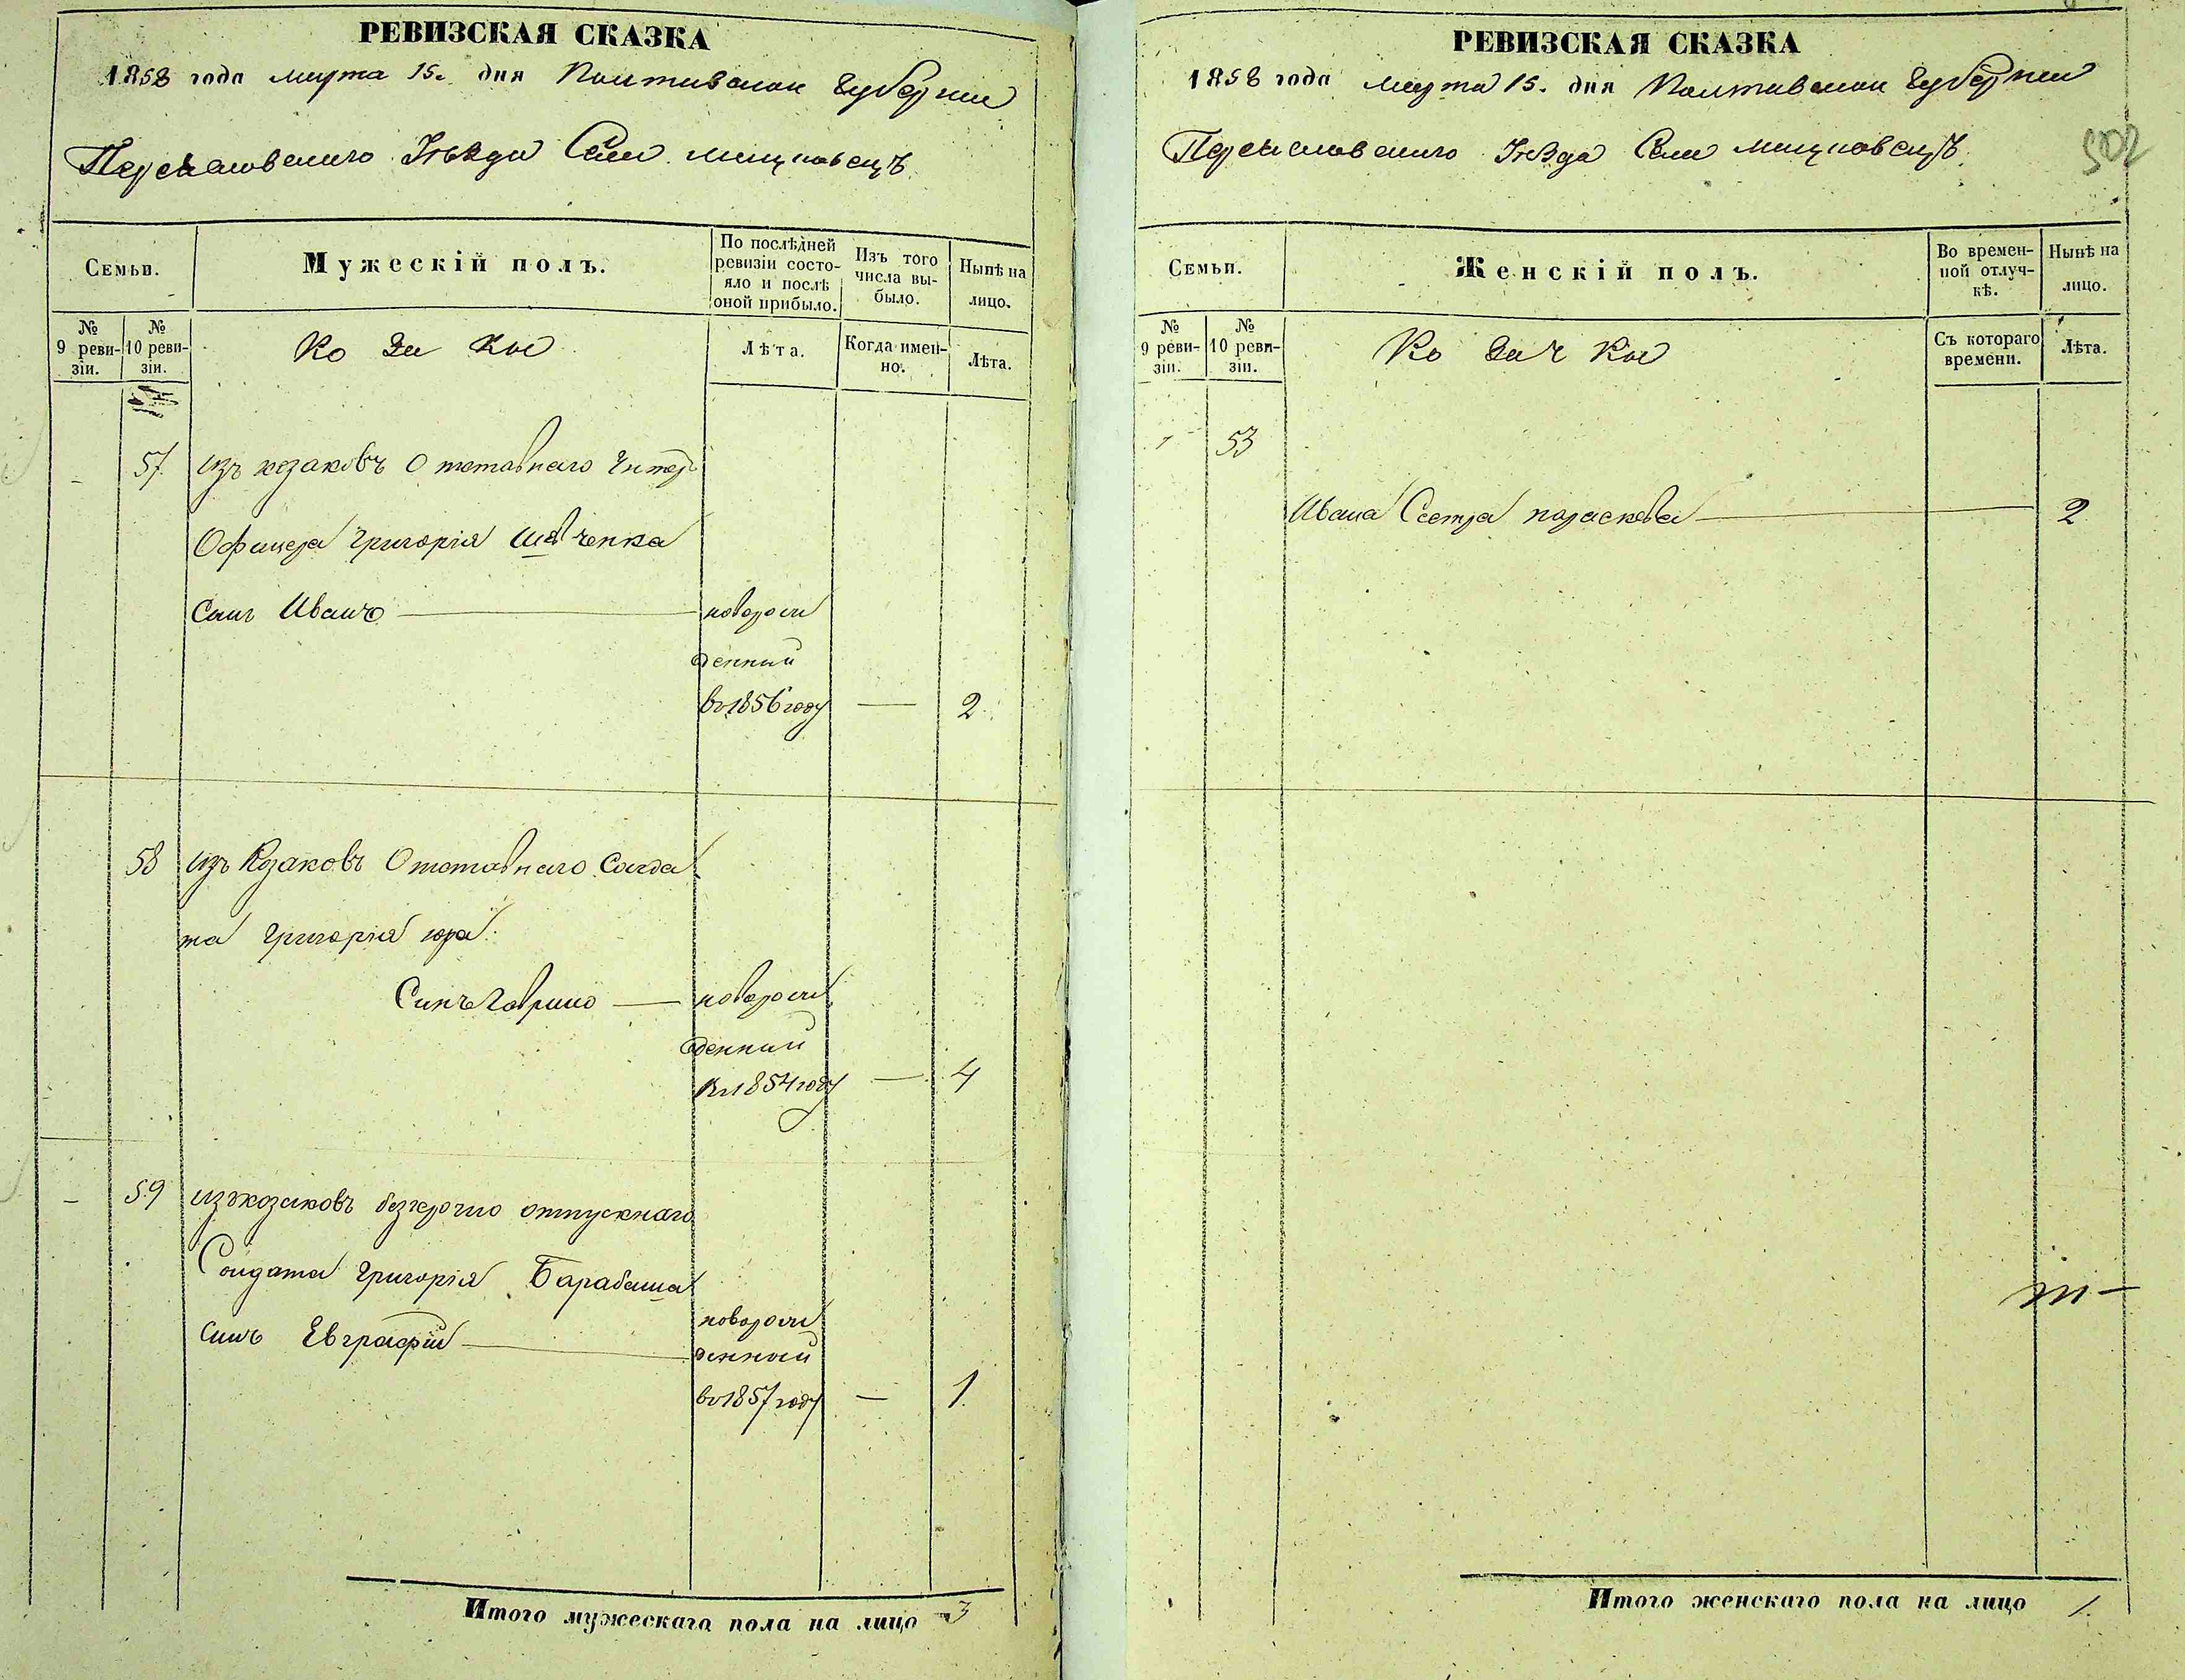 РЕВИЗСКАЯ СКАЗКА
1858 года марта 15. дня Полтавской Губернии
Переяславскаго Уѣзда Села
Семьи.
Мужескій полъ.
По послѣдней ревизіи состо-
яло и послѣ
оной прибыло.
Изъ того
числа вы-
было.
Нынѣ на
лицо.
№
9 реви-
зіи.
№
10 реви-
зіи.
Козаки
Лѣта.
Когда имен-
но.
Лѣта.
57. изъ козаковъ Отставнаго Унтер
Офицера Григорія Шевченка
Синъ Иванъ новорож
денний
въ 1856 году — 2
58 изъ Козаковъ Отставнаго Солда
та Григорія Юра
Синъ Гаврило — новорож
денний
въ 1854 году — 4
- 59 изъ козаковъ безсрочно отпускнаго
Солдата Григорія Барабаша
синъ Евграфій новорож
денний
въ 1857 году — 1
Итого мужескаго пола на лицо 3
РЕВИЗСКАЯ СКАЗКА
1858 года марта 15. дня Полтавской Губернии
Переяславскаго Уѣзда Села
502
Семьи.
Женскій полъ.
Во времен-
ной отлуч-
кѣ.
Нынѣ на
лицо.
№
9 реви-
зіи.
№
10 реви-
зіи.
Козачки
Съ котораго
времени.
Лѣта.
53
Ивана Сестра Параскева 2
Итого женскаго пола на лицо 1.